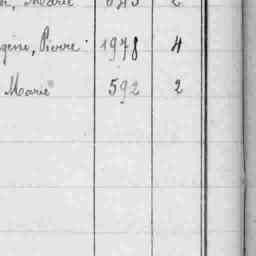 Marie 643 2
gène, Pierre 1978 4
Marie 592 2